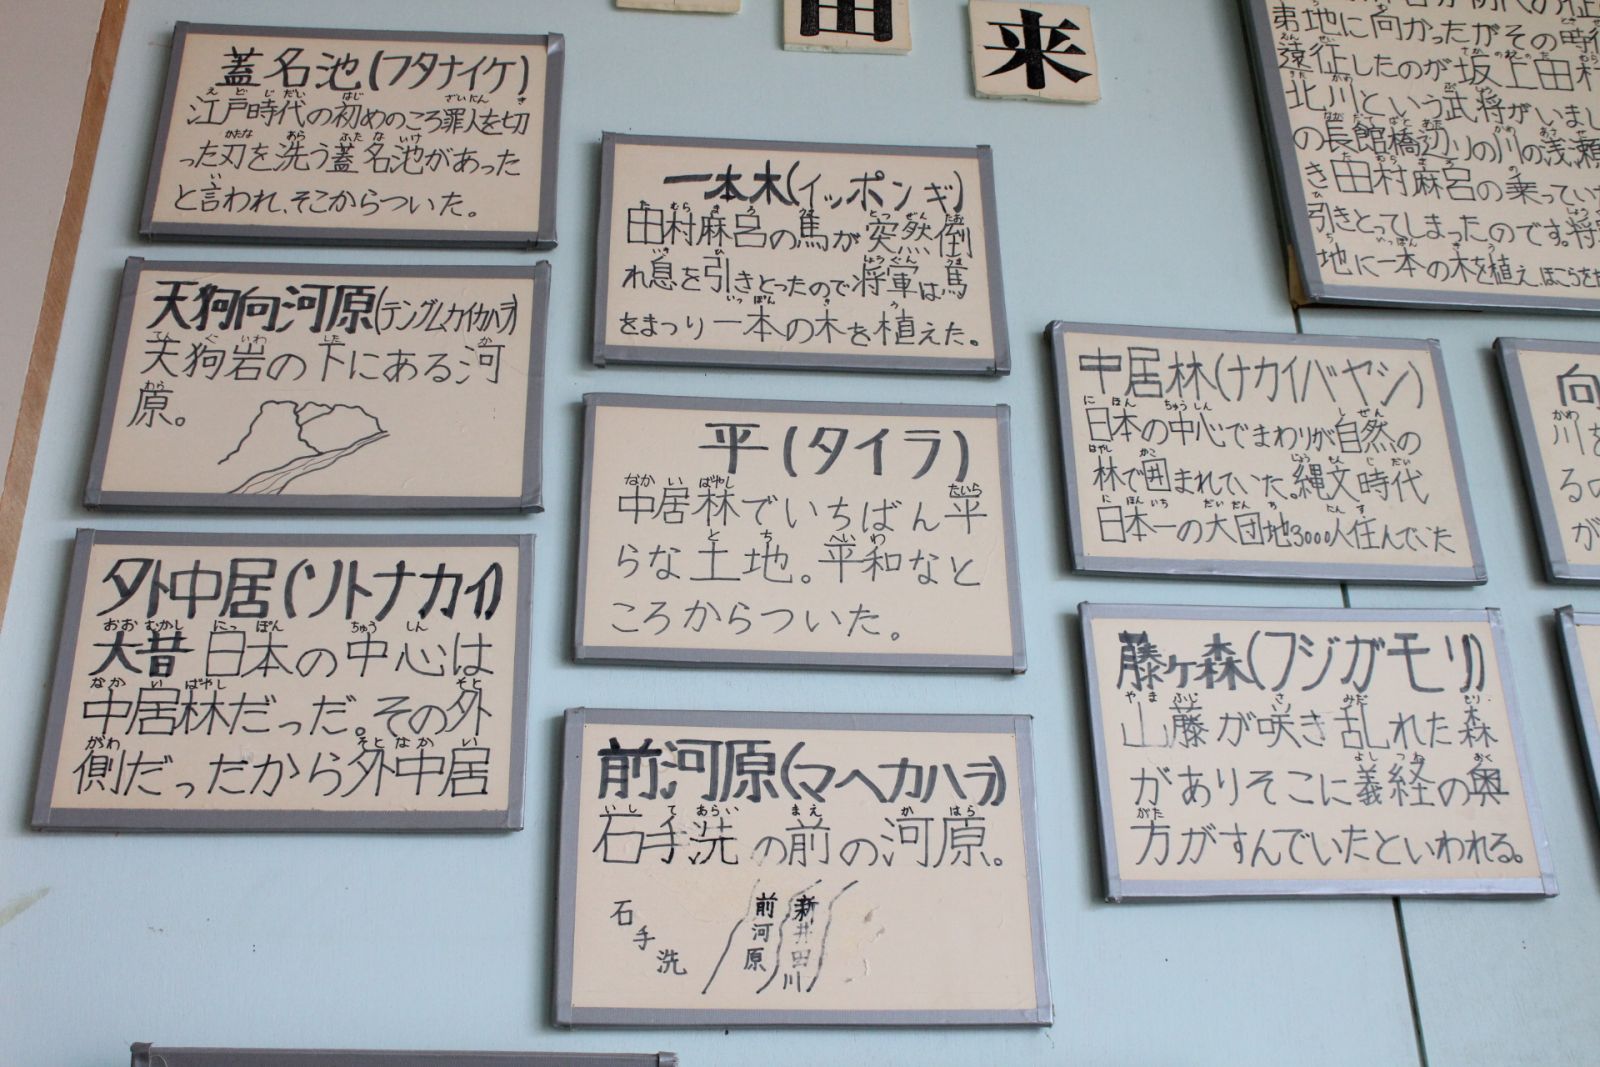 由来
蓋名池(フタナイケ)
江戸時代の初めのころ罪人を切
った刃を洗う蓋名池があった
と言われ、そこからついた。
天狗向河原(テングムカイカハラ)
天狗岩の下にある河
原。
外中居(ソトナカイ)
大昔日本の中心は
中居林だっだ。その外
側だったから外中居
一本木(イッポンギ)
田村麻呂の馬が突然倒
れ息を引きとったので将軍は馬
をまつり一本の木を植えた。
平(タイラ)
中居林でいちばん平
らな土地。平和なと
ころからついた。
前河原(マヘカハラ)
石手洗の前の河原。
石手洗
前河原
新井田川
中居林(ナカイバヤシ)
日本の中心でまわりが自然の
林で囲まれていた。縄文時代
日本一の大団地3000人住んでいた
藤ヶ森(フジガモリ)
山藤が咲き乱れた森
がありそこに義経の奥
方がすんでいたといわれる。
地に向かったがその時
遠征したのが坂上田村
北川という武将がいまし
の長館橋辺りの川の浅瀬
き田村麻呂の乗ってい
引きとってしまったのです。将
地に一本の木を植え、ほこらを
向
川を
るの
が